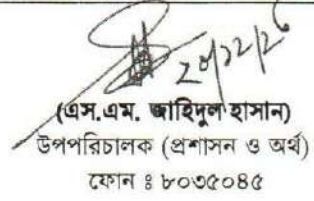 (এস.এম. জাহিদুল হাসান)
উপপরিচালক (প্রশাসন ও অর্থ)
ফোন ঃ ৮০৩৫০৪৫